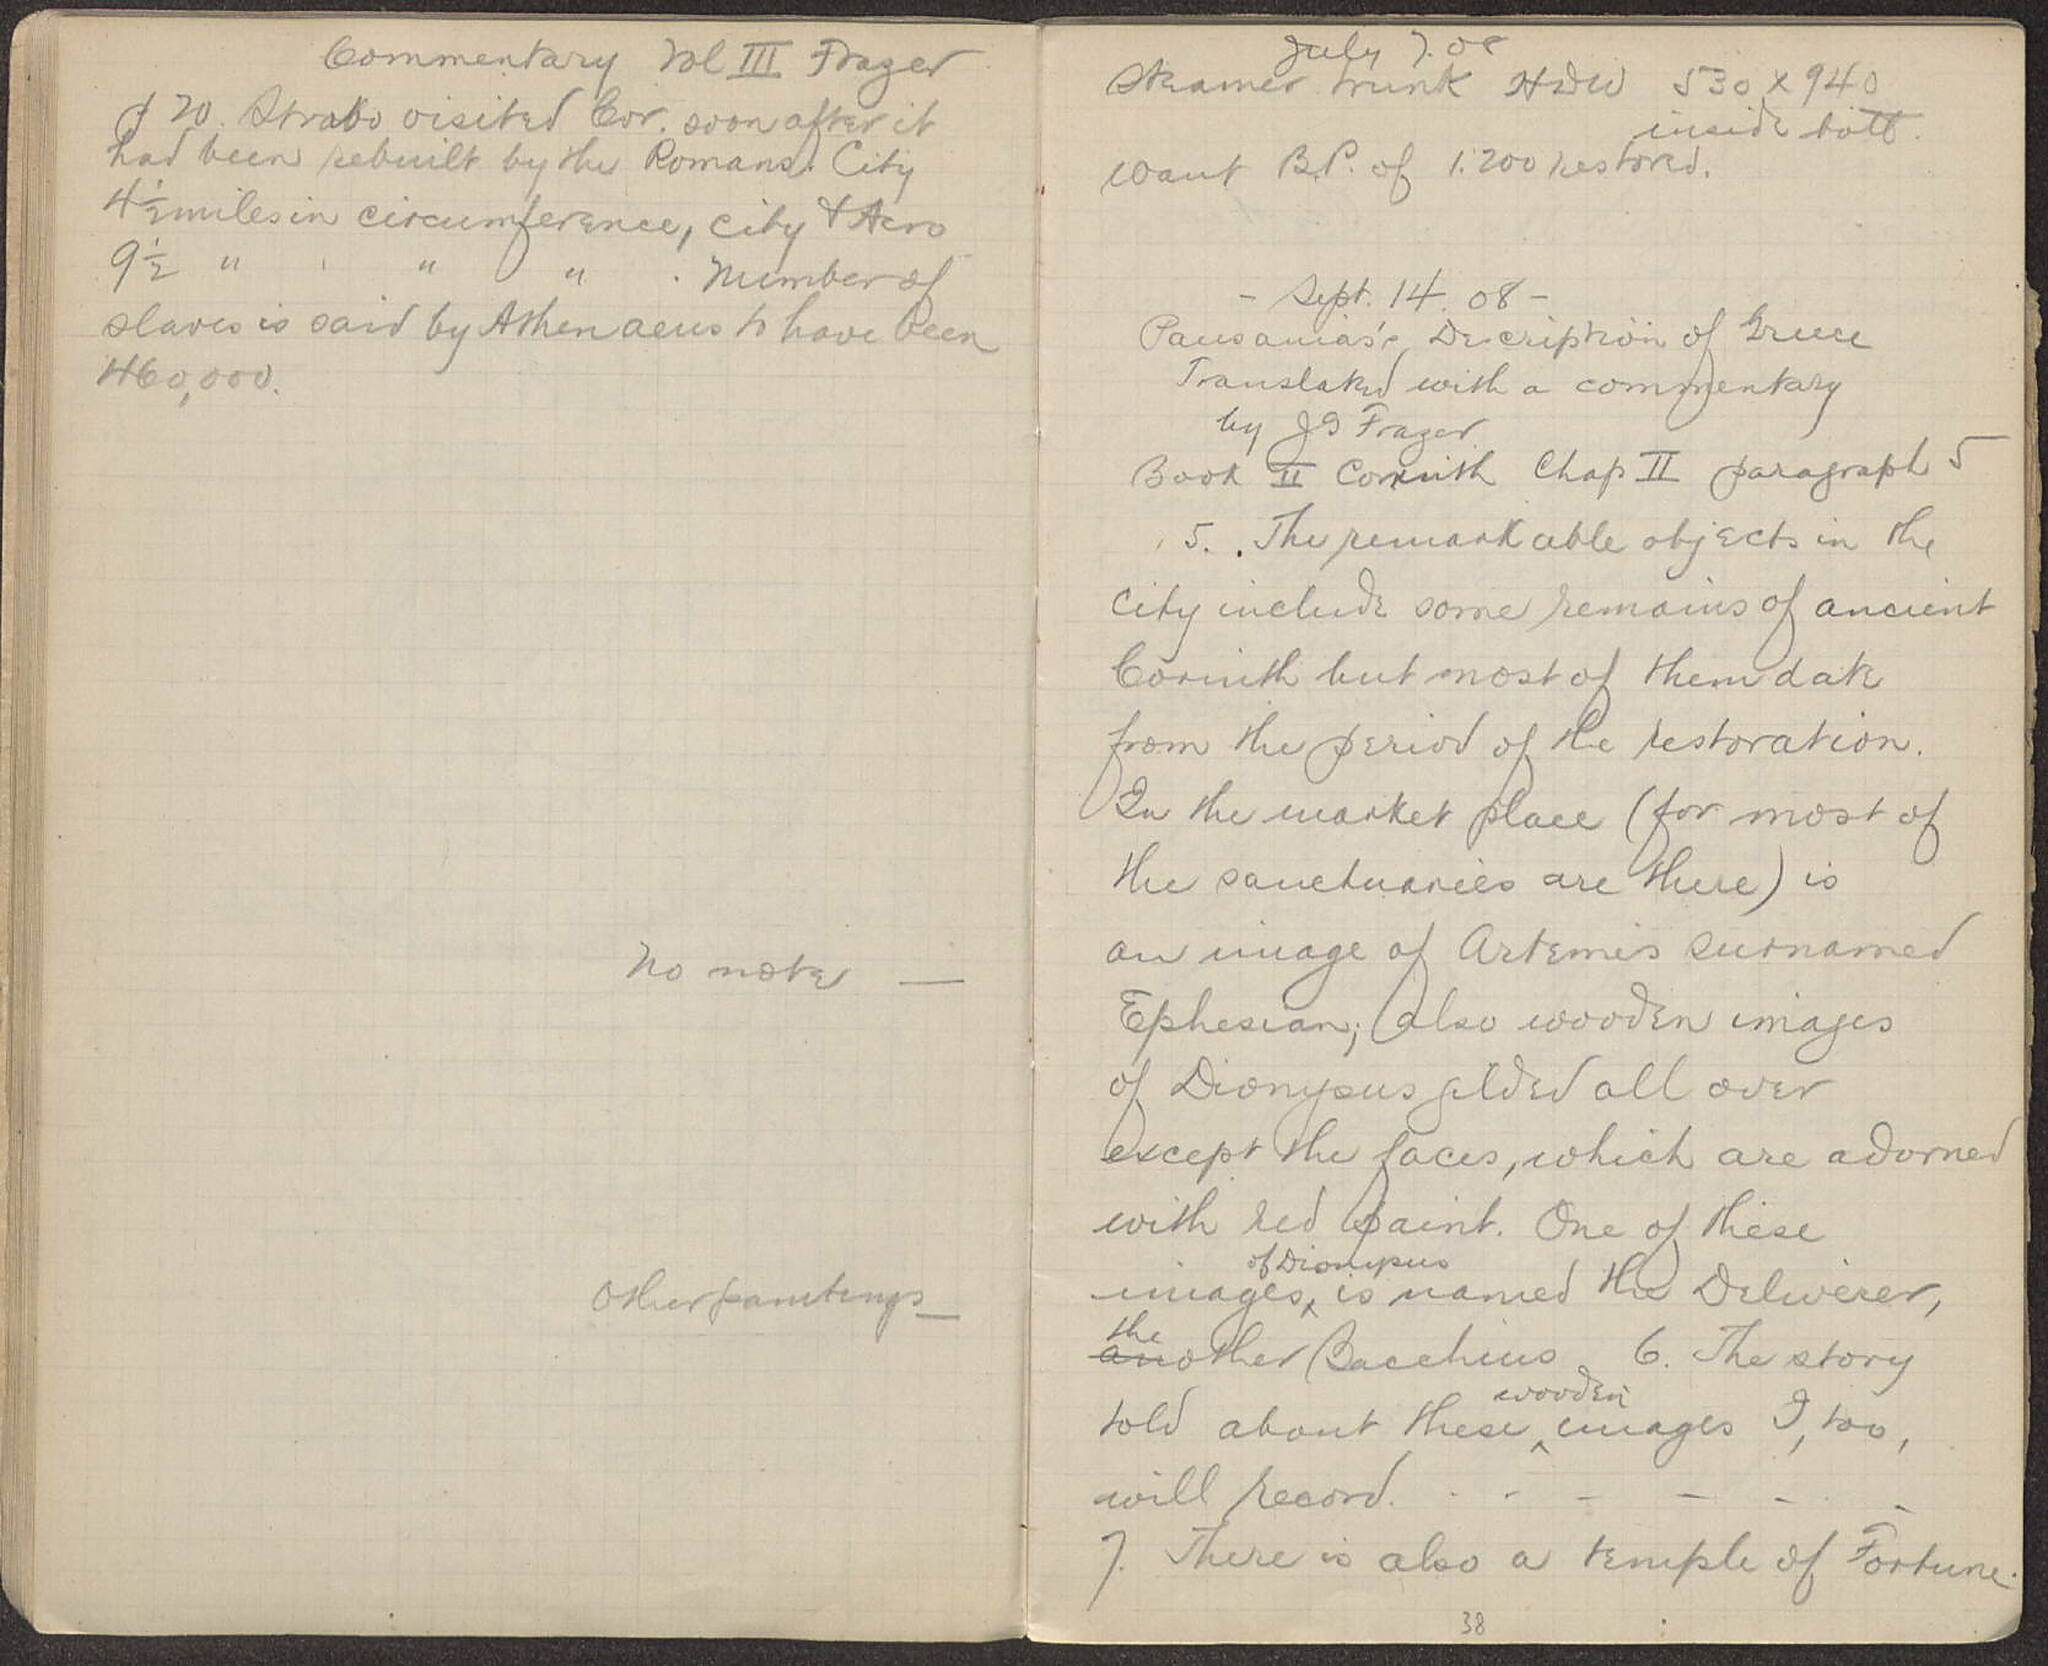 Commentary Vol III Frazer
p 20. Strabo visited Cor. soon after it
had been rebuilt by the Romans. City
4½ miles in circumference, city & Acro
9½ " " " . Number of
slaves is said by Athenaeus to have been
460,000.
No note —
Other paintings —
July 7. 08
Steamer trunk HDW 530 x 940
inside bott.
Want B.P. of 1:200 restored.
- Sept. 14. 08 -
Pausanias's Description of Greece
Translated with a commentary
by JG Frazer
Book II Corinth Chap II paragraph 5
5. . The remarkable objects in the
city include some remains of ancient
Corinth but most of them date
from the period of the restoration.
In the market place (for most of
the sanctuaries are there) is
an image of Artemis surnamed
Ephesian; also wooden images
of Dionysus gilded all over
except the faces, which are adorned
with red paint. One of these
of Dionysus
images ^ is named the Deliverer,
the
another Bacchius. 6. The story
wooden
told about these ^ images I, too,
will record. . - - - - -
7. There is also a temple of Fortune.
38